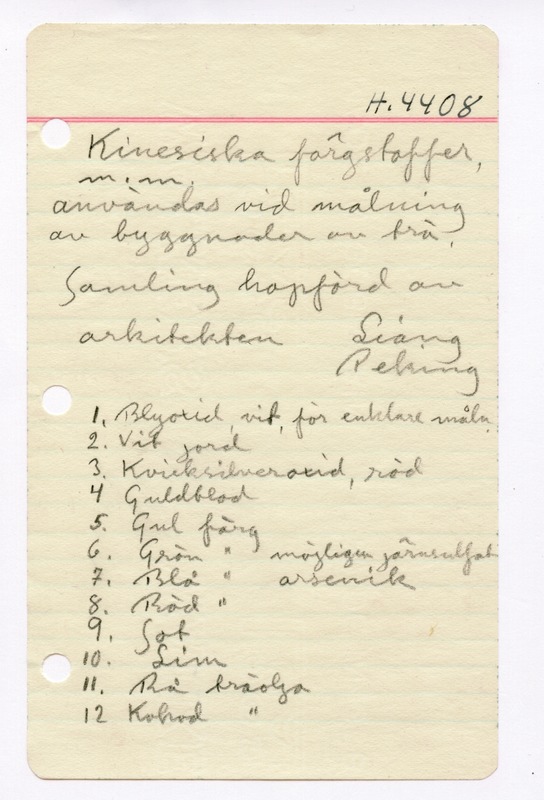 H. 4408
Kinesiska färgstoffer,
m.m.
användas vid målning
av byggnader av trä.
Samling hopförd av
arkitekten Liang
Peking
1. Blyoxid, vit, för enklare måln.
2. Vit jord
3. Kvicksilveroxid, röd
4 Guldblad
5. Gul färg
6. Grön " möjligen järnsulfat
7. Blå " arsenik
8. Röd "
9. Sot
10. Lim
11. Rå träolja
12 Kokad "